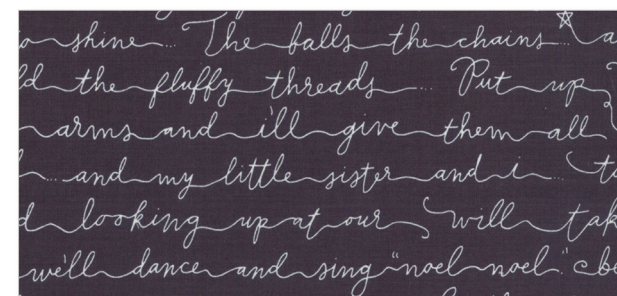 to shine... The balls the chains... a
ld the fluffy threads... Put up
arms and i'll give them all
... and my little sister and i... to
d looking up at our will tak
we'll dance and sing "noel noel." be